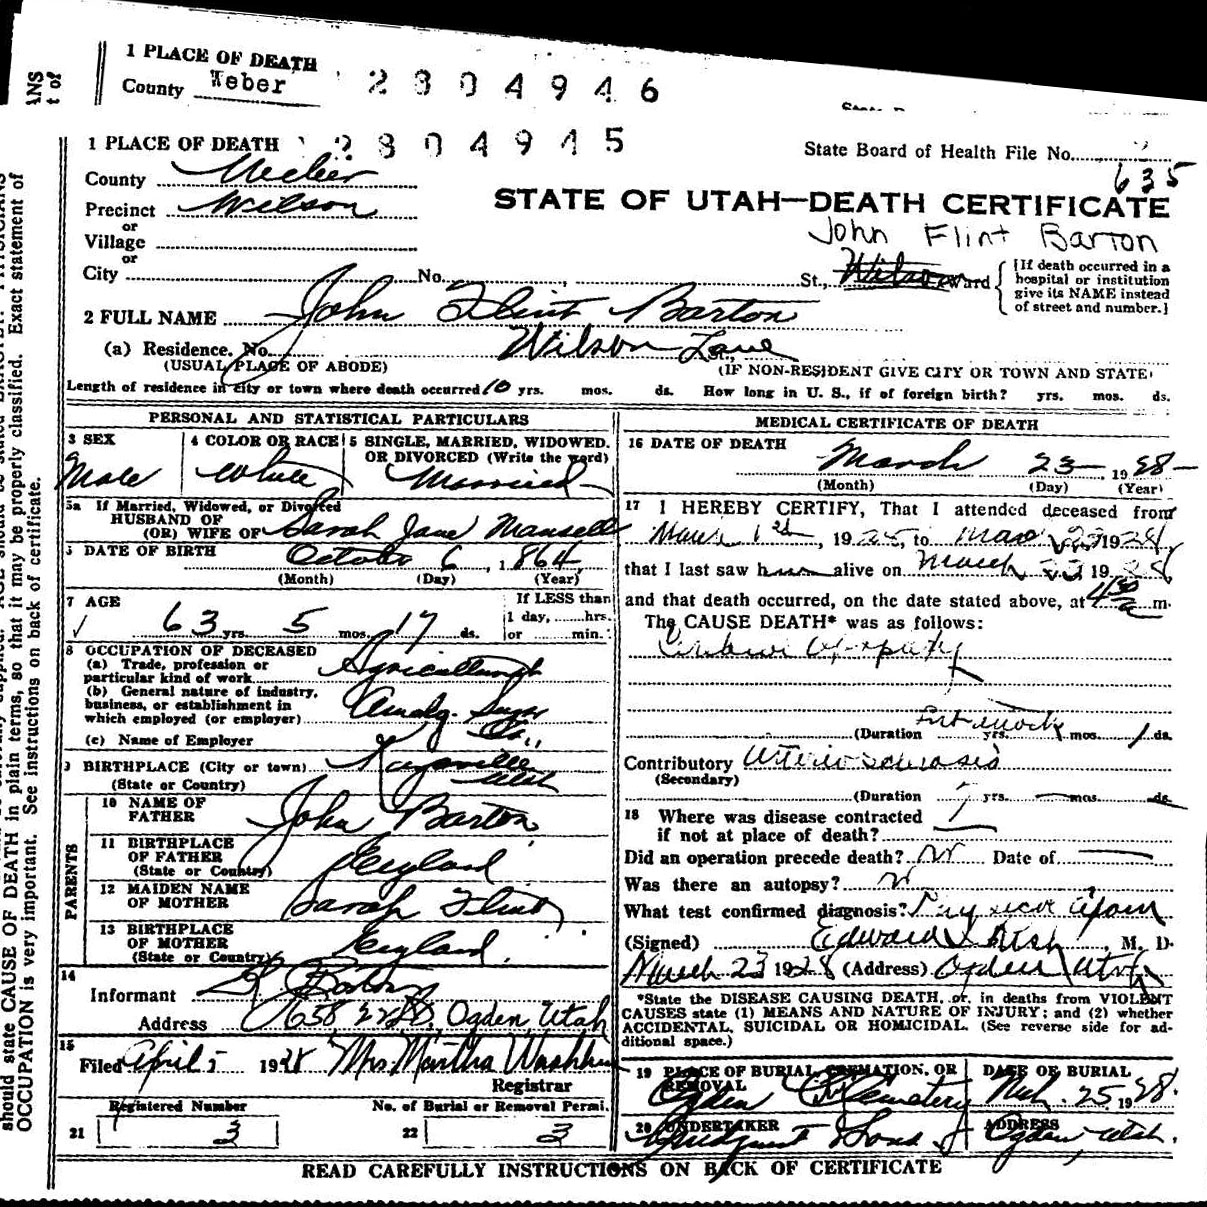 1 PLACE OF DEATH
County Weber
2804946
ANS
t of
State
1 PLACE OF DEATH 2804945
State Board of Health File No. 635
County Weber
STATE OF UTAH—DEATH CERTIFICATE
Precinct Wilson
or
Village
John Flint Barton
or
City No. St., Wilson Ward
[If death occurred in a
hospital or institution
give its NAME instead
of street and number.]
2 FULL NAME John Flint Barton
(a) Residence. No. Wilson Lane St.,
(USUAL PLACE OF ABODE) (IF NON-RESIDENT GIVE CITY OR TOWN AND STATE)
Length of residence in city or town where death occurred 10 yrs. mos. ds. How long in U. S., if of foreign birth? yrs. mos. ds.
PERSONAL AND STATISTICAL PARTICULARS
3 SEX
Male
4 COLOR OR RACE
White
5 SINGLE, MARRIED, WIDOWED,
OR DIVORCED (Write the word)
Married
5a If Married, Widowed, or Divorced
HUSBAND OF
(OR) WIFE OF Sarah Jane Mansell
DATE OF BIRTH
October 6, 1864
(Month) (Day) (Year)
7 AGE
63 yrs. 5 mos. 17 ds.
If LESS than
1 day, hrs.
or min.
8 OCCUPATION OF DECEASED
(a) Trade, profession or
particular kind of work
(b) General nature of industry,
business, or establishment in
which employed (or employer) Amalg. Sugar
Co.,
(c) Name of Employer
BIRTHPLACE (City or town) Kaysville
(State or Country) Utah
PARENTS
10 NAME OF
FATHER John Barton
11 BIRTHPLACE
OF FATHER
(State or Country) England
12 MAIDEN NAME
OF MOTHER Sarah Flint
13 BIRTHPLACE
OF MOTHER
(State or Country) England.
14
Informant Barton
Address Ogden, Utah
15
Filed April 5 1928 Mrs. Martha Washburn
Registrar
Registered Number
21 3
No. of Burial or Removal Permi.
22 3
MEDICAL CERTIFICATE OF DEATH
16 DATE OF DEATH
March 23 1928
(Month) (Day) (Year)
17 I HEREBY CERTIFY, That I attended deceased from
March 1st, 1925, to Mar 23 1928,
that I last saw him alive on March 23 1928
and that death occurred, on the date stated above, at 4 30 a m.
The CAUSE DEATH* was as follows:
(Duration yrs. mos. 1 ds.
Contributory
(Secondary)
(Duration 7 yrs. mos. ds.
18 Where was disease contracted
if not at place of death?
Did an operation precede death? No Date of
Was there an autopsy?
What test confirmed diagnosis?
(Signed) Edward I. Rich, M. D.
March 23 1928 (Address) Ogden Utah
*State the DISEASE CAUSING DEATH, or, in deaths from VIOLENT
CAUSES state (1) MEANS AND NATURE OF INJURY; and (2) whether
ACCIDENTAL, SUICIDAL OR HOMICIDAL. (See reverse side for ad-
ditional space.)
19 PLACE OF BURIAL, CREMATION, OR
REMOVAL
Ogden Cemetery
DATE OF BURIAL
Mch. 25 1928.
20 UNDERTAKER
Lindquist & Sons
ADDRESS
Ogden, Utah.
READ CAREFULLY INSTRUCTIONS ON BACK OF CERTIFICATE
should state CAUSE OF DEATH in plain terms, so that it may be properly classified. Exact statement of
OCCUPATION is very important. See instructions on back of certificate.